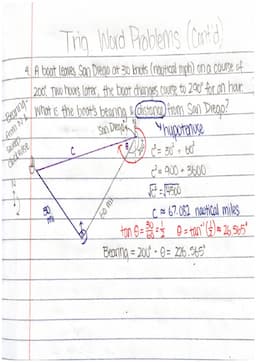 Trig Word Problems (Cont'd)
4. A boat leaves San Diego at 30 knots (nautical mph) on a course of
200°. Two hours later, the boat changes course to 290° for an hour.
What is the boat's bearing & distance from San Diego?
hypotenuse
San Diego
Bearing-
from N &
clockwise
c
c² = 30² + 60²
c² = 900 + 3600
√c² = √4500
c ≈ 67.082 nautical miles
30
mi
60 mi
tan θ = 30/60 = 1/2 θ = tan⁻¹(1/2) ≈ 26.565°
Bearing = 200° + θ = 226.565°